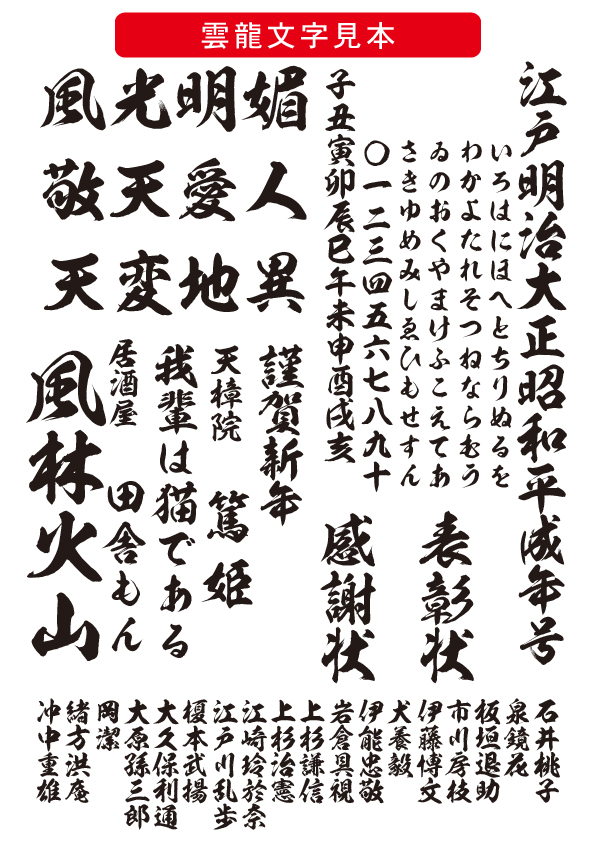 雲龍文字見本
江戸明治大正昭和平成年号
いろはにほへとちりぬるを
わかよたれそつねならむう
ゐのおくやまけふこえてあ
さきゆめみしゑひもせすん
〇一二三四五六七八九十
子丑寅卯辰巳午未申酉戌亥
表彰状
感謝状
媚明光風
人愛天敬
異地変天
謹賀新年
天樟院 篤姫
我輩は猫である
居酒屋 田舎もん
風林火山
石井桃子
泉鏡花
板垣退助
市川房枝
伊藤博文
犬養毅
伊能忠敬
岩倉具視
上杉謙信
上杉治憲
江崎玲於奈
江戸川乱歩
榎本武揚
大久保利通
大原孫三郎
岡潔
緒方洪庵
沖中重雄